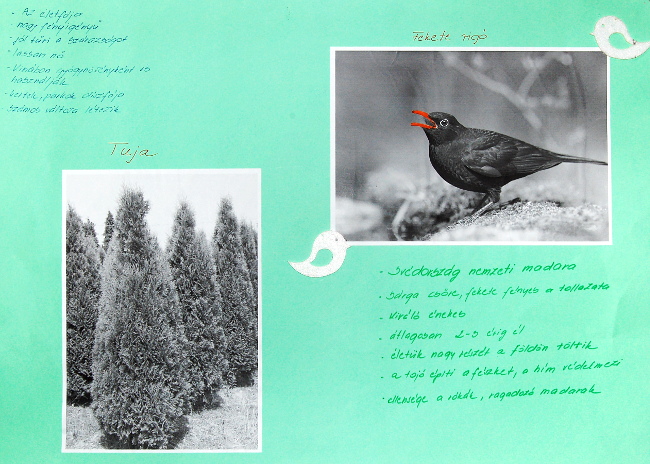 - Az életfája
- nagy fényigényű
- jól tűri a szárazságot
- lassan nő
- Virában gyógynövényként is
használják
- kertek, parkok díszfája
számos változa létezik
Tuja
Fekete rigó
- Svédország nemzeti madara
- sárga csőre, fekete fényes a tollazata
- kiváló énekes
- átlagosan 2-5 évig él
- életük nagy részét a földön töltik
- a tojó építi a fészket, a hím védelmezi
- ellensége a rókák, ragadozó madarak